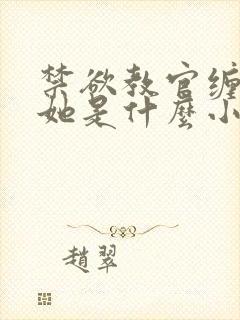 禁欲教官缠
她是什麼小
趙翠